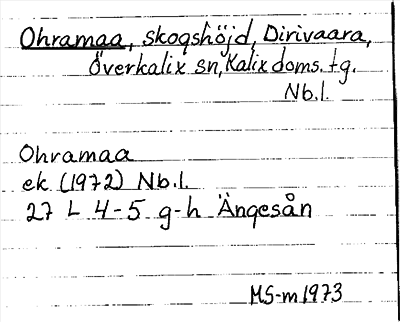 Ohramaa, skogshöjd, Dirivaara,
Överkalix sn, Kalix doms. tg.
Nb.l.
Ohramaa
ek (1972) Nb.l.
27 L 4-5 g-h Ängesån
MS-m 1973